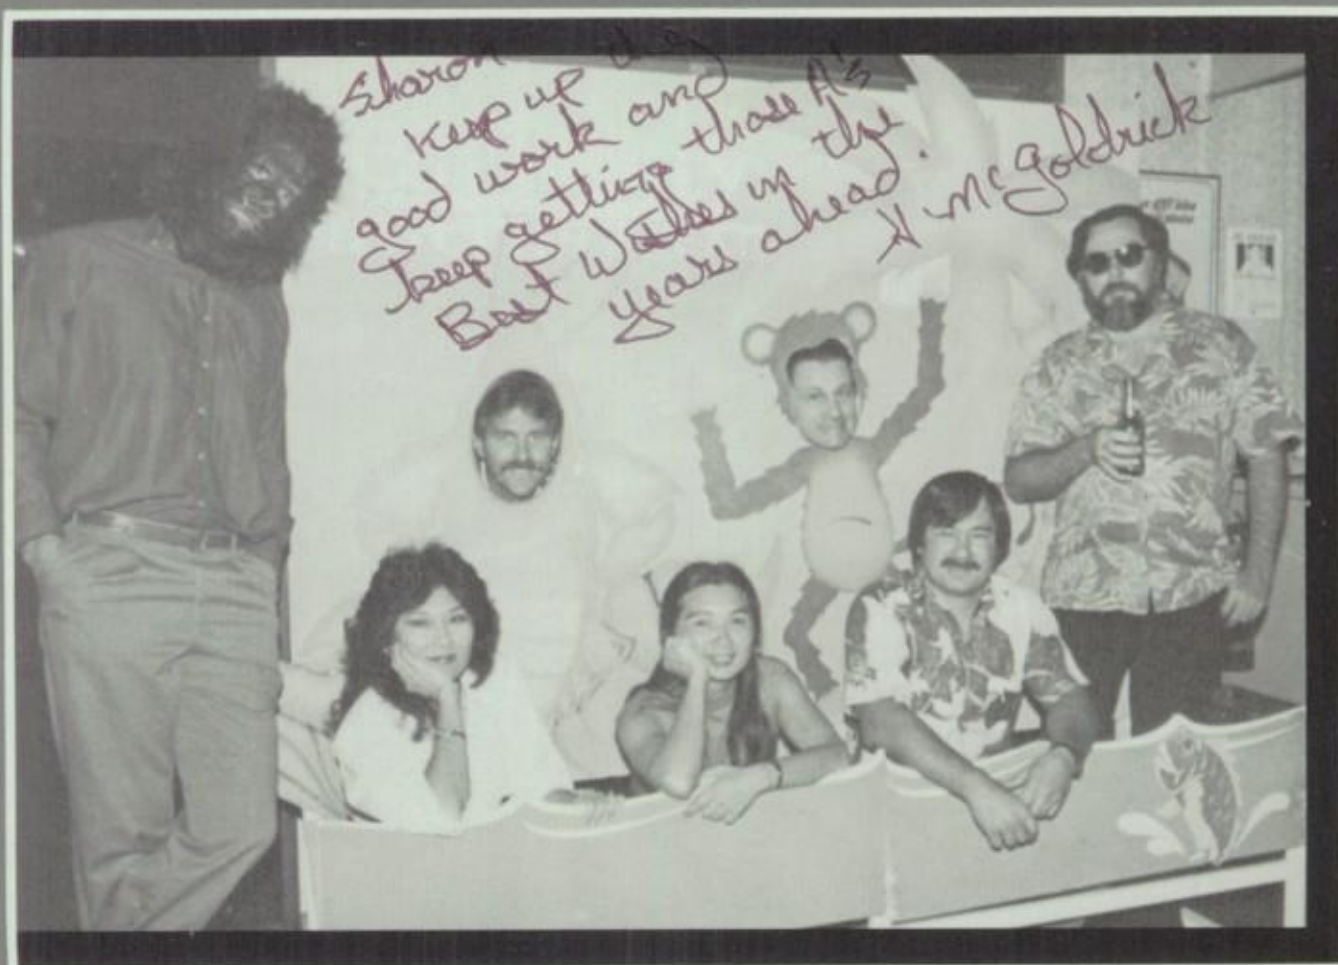 Sharon
Keep up the
good work and
keep getting those A's
Best Wishes in the
years ahead.
McGoldrick